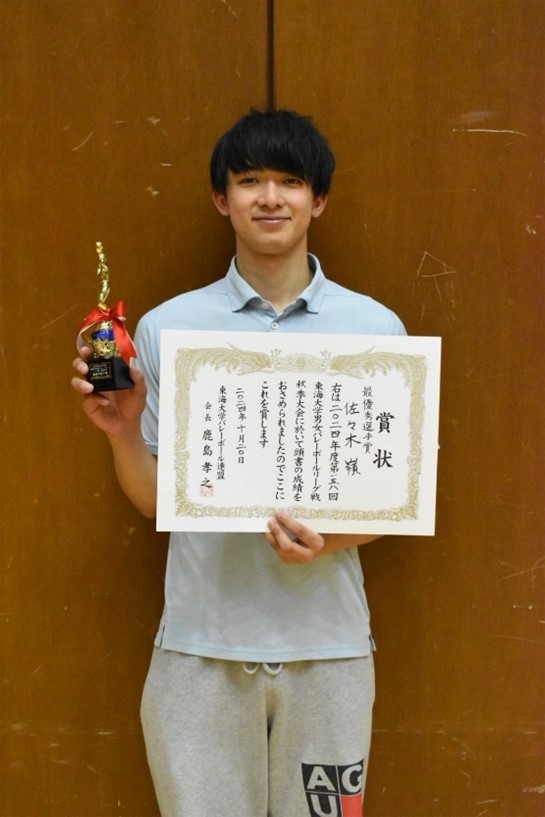 賞状
最優秀選手賞
佐々木 嶺
右は二〇二四年度第一五八回
東海大学男女バレーボールリーグ戦
秋季大会に於いて頭書の成績を
おさめられましたのでここに
これを賞します
二〇二四年十月二〇日
東海大学バレーボール連盟
会長 鹿島孝之
AG
U